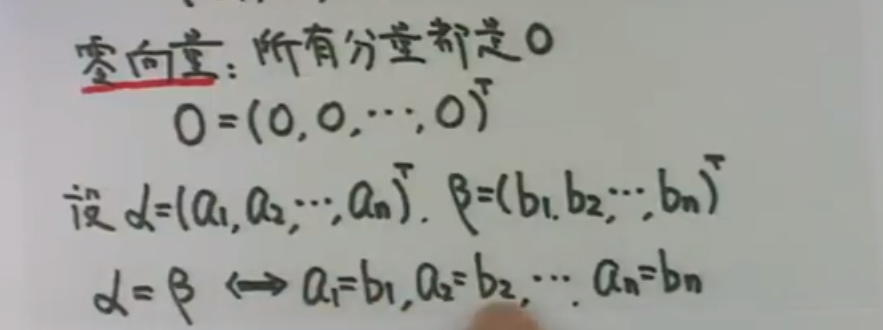 零向量：所有分量都是0
0=(0,0,⋯,0)ᵀ
设 α=(a₁,a₂,⋯,aₙ)ᵀ. β=(b₁.b₂,⋯,bₙ)ᵀ
α=β ⟺ a₁=b₁,a₂=b₂,⋯. aₙ=bₙ